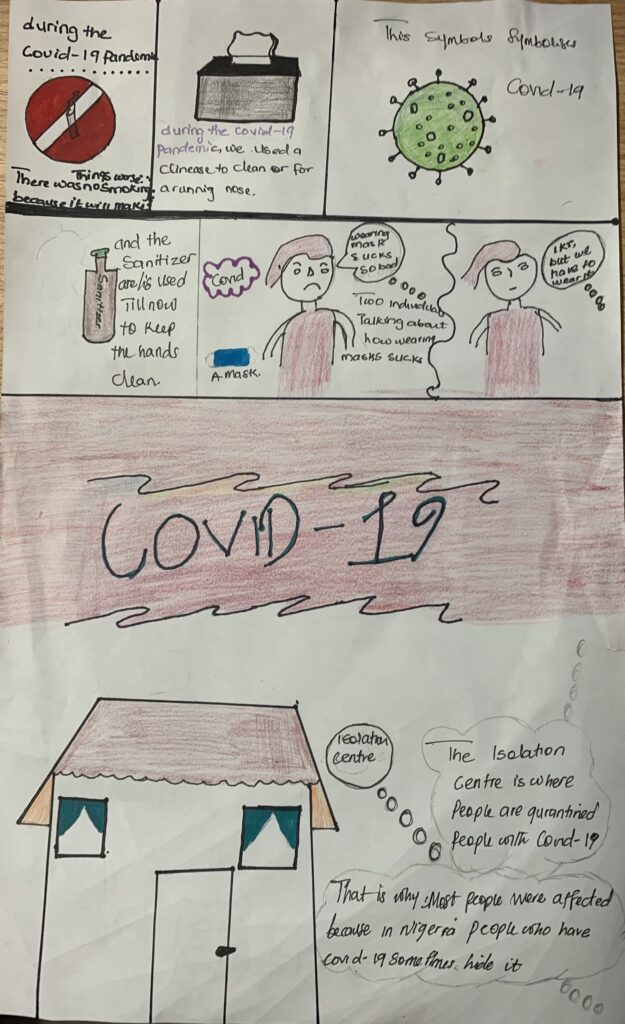 during the
Covid-19 Pandemic
Things worse.
There was no Smoking
because it will make
during the covid-19
pandemic, we used a
clinease to clean or for
a running nose.
This Symbols Symbolises
Covid-19
Sanitizer
and the
Sanitizer
are/is used
Till now
to keep
the hands
clean.
Covid
A mask.
wearing
mask
sucks
so bad
Two individuals
Talking about
how wearing
masks sucks
IKr,
but we
have to
wear it
COVID-19
Isolation
Centre
The Isolation
Centre is where
People are qurantined
People with Covid-19
That is why Most people were affected
because in Nigeria people who have
covid-19 sometimes hide it